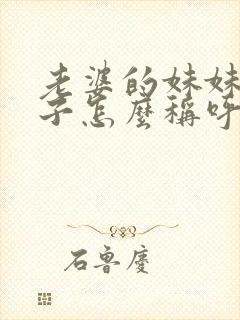 老婆的妹妹
子怎麼稱呼
石魯慶